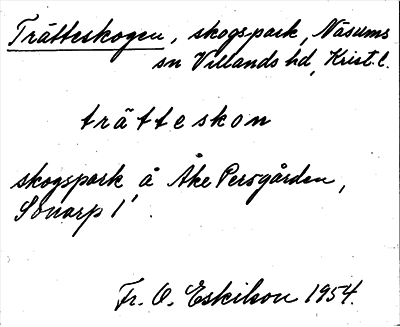 Trätteskogen, skogspark, Näsums
sn Villands hd, Krist. l.
trätteskon
skogspark å Åke Persgården,
Sonarp 1'.
Fr. O. Eskilson 1954.